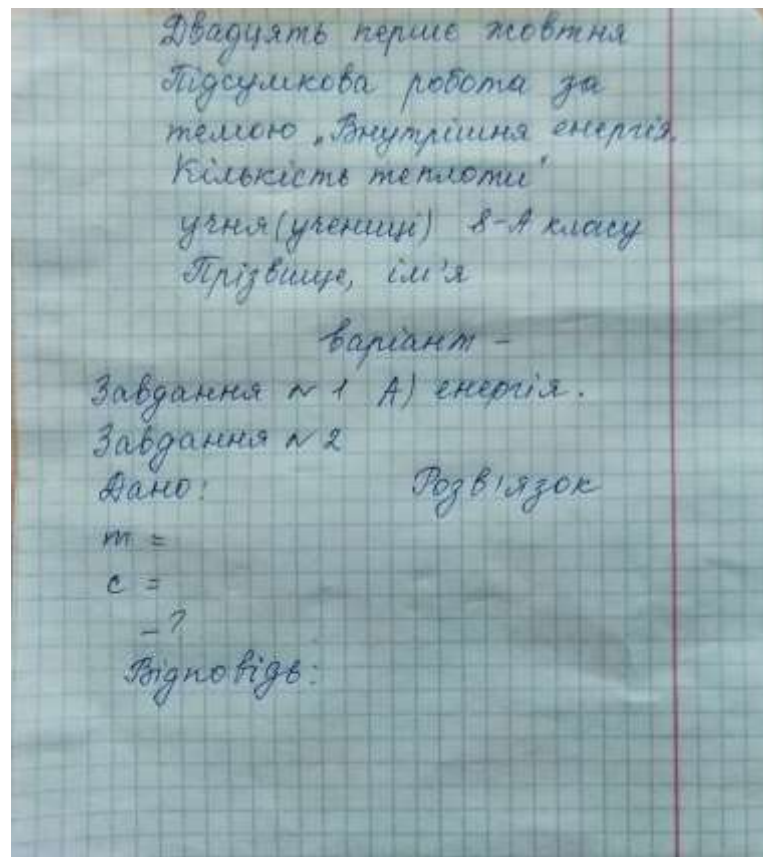 Двадцять перше жовтня
Підсумкова робота за
темою „Внутрішня енергія.
Кількість теплоти"
учня (учениці) 8-А класу
Прізвище, ім'я
варіант –
Завдання № 1 А) енергія.
Завдання № 2
Дано: Розв'язок
m =
c =
– ?
Відповідь: